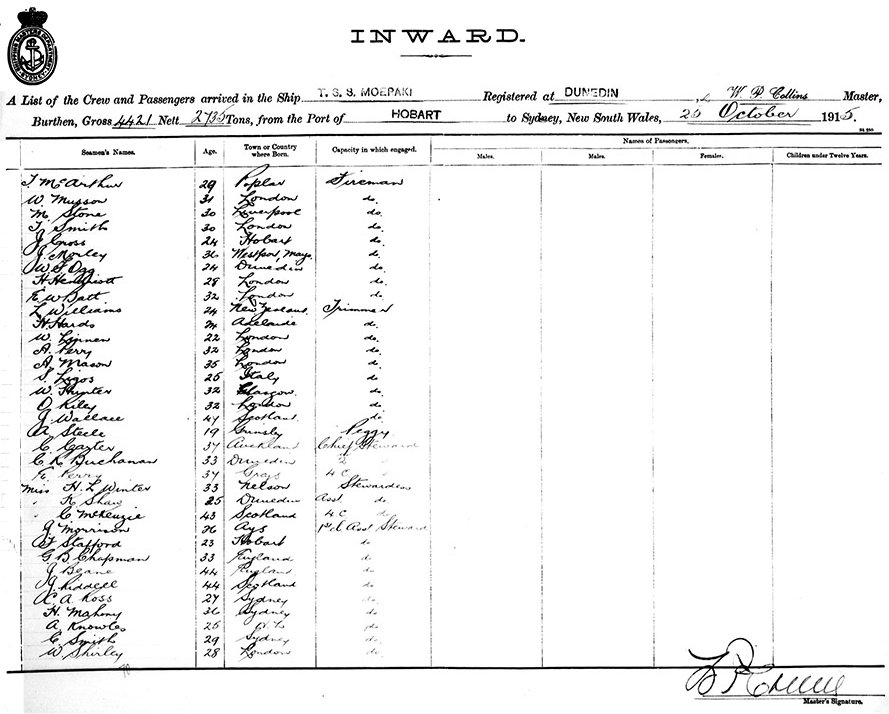 SHIPPING MASTERS DEPARTMENT SYDNEY
INWARD.
A List of the Crew and Passengers arrived in the Ship T. S. S. MOERAKI Registered at DUNEDIN, W P Collins Master,
Burthen, Gross 4421 Nett 2735 Tons, from the Port of HOBART to Sydney, New South Wales, 25 October 1915.
Seamen's Names. Age. Town or Country where Born. Capacity in which engaged. Names of Passengers.
Males. Males. Females. Children under Twelve Years.
T McArthur 29 Poplar Fireman
W. Musson 31 London do.
M. Stone 30 Liverpool do.
T. Smith 30 London do.
J Gross 24 Hobart do.
J. Morley 36 Westport, Mayo. do.
W. S. Ogg 24 Dunedin do.
H 28 London do.
E W Batt 32 London do.
L Williams 24 New Zealand. Trimmer
H. Hards 24 Adelaide d.
W. Linnen 22 London do
A. Perry 32 London do
A. Mason 35 London do
S. Ligos 25 Italy do
W. Hunter 32 Glasgow. do.
O Riley 32 London do
J. Wallace 47 Scotland. do.
A Steele 19 Grimsby Peggy
C Carter 37 Auckland Chief Steward
C. R Buchanan 33 Dunedin 2
E. Perry 37 Grays 4 C
Miss H. L Winter 33 Nelson Stewardess
" K Shaw 25 Dunedin Asst do.
" C McKenzie 43 Scotland 4 C do
J Morrison 26 Ays 1st cl Asst Steward
F Stafford 23 Hobart do
G B. Chapman 33 England do
J Beane 44 England do
J Riddell 44 Scotland do.
A. Ross 27 Sydney do.
H. Mahony 36 Sydney do.
A. Knowles 25 do.
C. Smith 29 Sydney do.
W Shirley 28 London do.
Master's Signature.